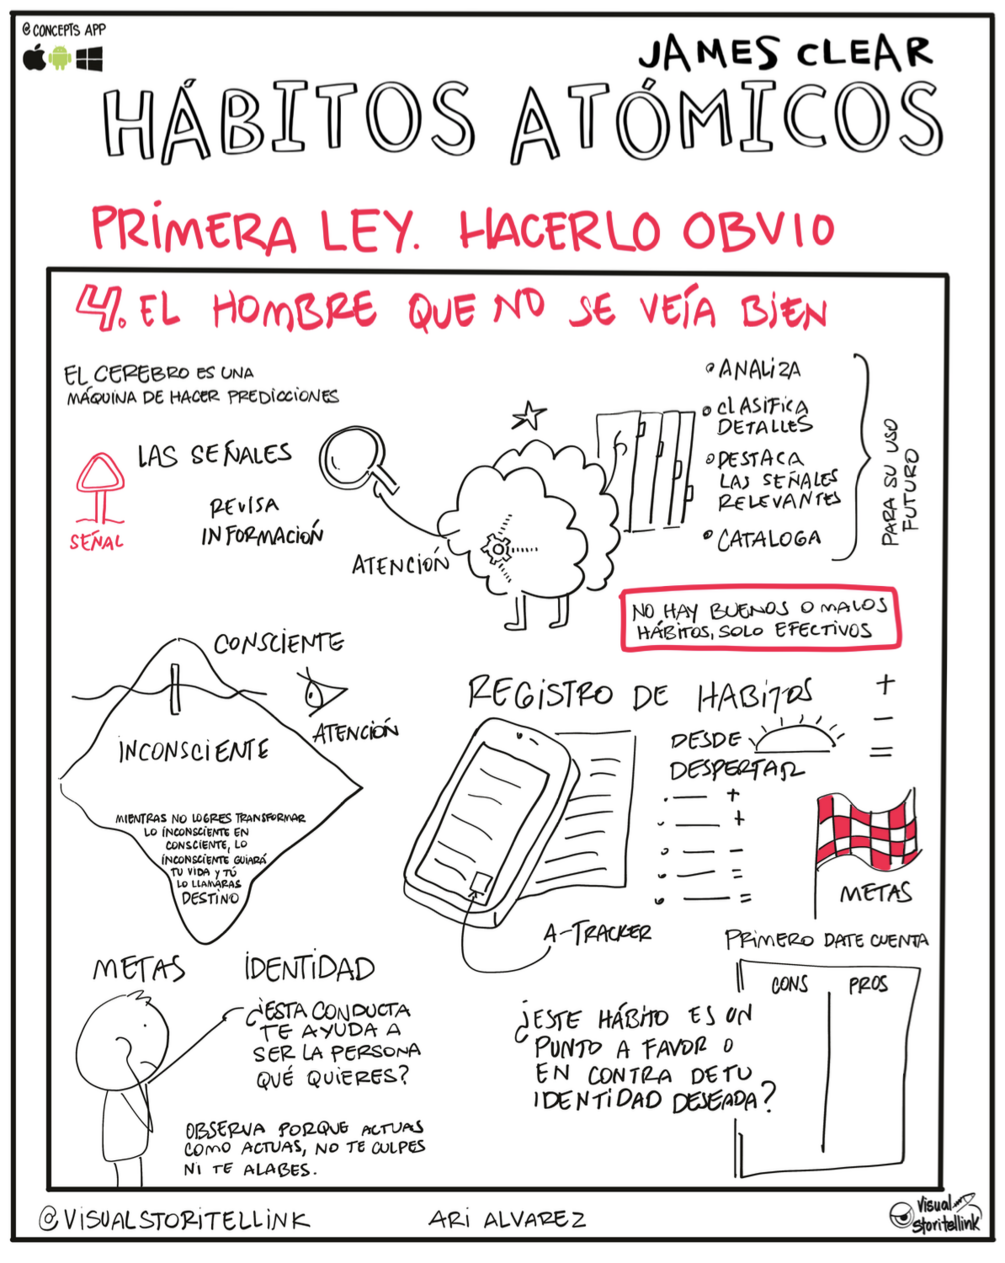 @ CONCEPTS APP
JAMES CLEAR
HÁBITOS ATÓMICOS
PRIMERA LEY. HACERLO OBVIO
4. EL HOMBRE QUE NO SE VEÍA BIEN
EL CEREBRO ES UNA
MÁQUINA DE HACER PREDICCIONES
SEÑAL
LAS SEÑALES
REVISA
INFORMACIÓN
ATENCIÓN
• ANALIZA
• CLASIFICA
DETALLES
• DESTACA
LAS SEÑALES
RELEVANTES
• CATALOGA
PARA SU USO
FUTURO
NO HAY BUENOS O MALOS
HÁBITOS, SOLO EFECTIVOS
CONSCIENTE
ATENCIÓN
INCONSCIENTE
MIENTRAS NO LOGRES TRANSFORMAR
LO INCONSCIENTE EN
CONSCIENTE, LO
INCONSCIENTE GUIARÁ
TU VIDA Y TÚ
LO LLAMARAS
DESTINO
REGISTRO DE HABITOS
+
-
=
DESDE
DESPERTAR
• — +
• — +
• — -
• — =
• — =
A-TRACKER
METAS
PRIMERO DATE CUENTA
CONS PROS
METAS IDENTIDAD
¿ESTA CONDUCTA
TE AYUDA A
SER LA PERSONA
QUÉ QUIERES?
OBSERVA PORQUE ACTUAS
COMO ACTUAS, NO TE CULPES
NI TE ALABES.
¿ESTE HÁBITO ES UN
PUNTO A FAVOR O
EN CONTRA DE TU
IDENTIDAD DESEADA?
@VISUALSTORITELLINK
ARI ALVAREZ
Visual
Storitellink